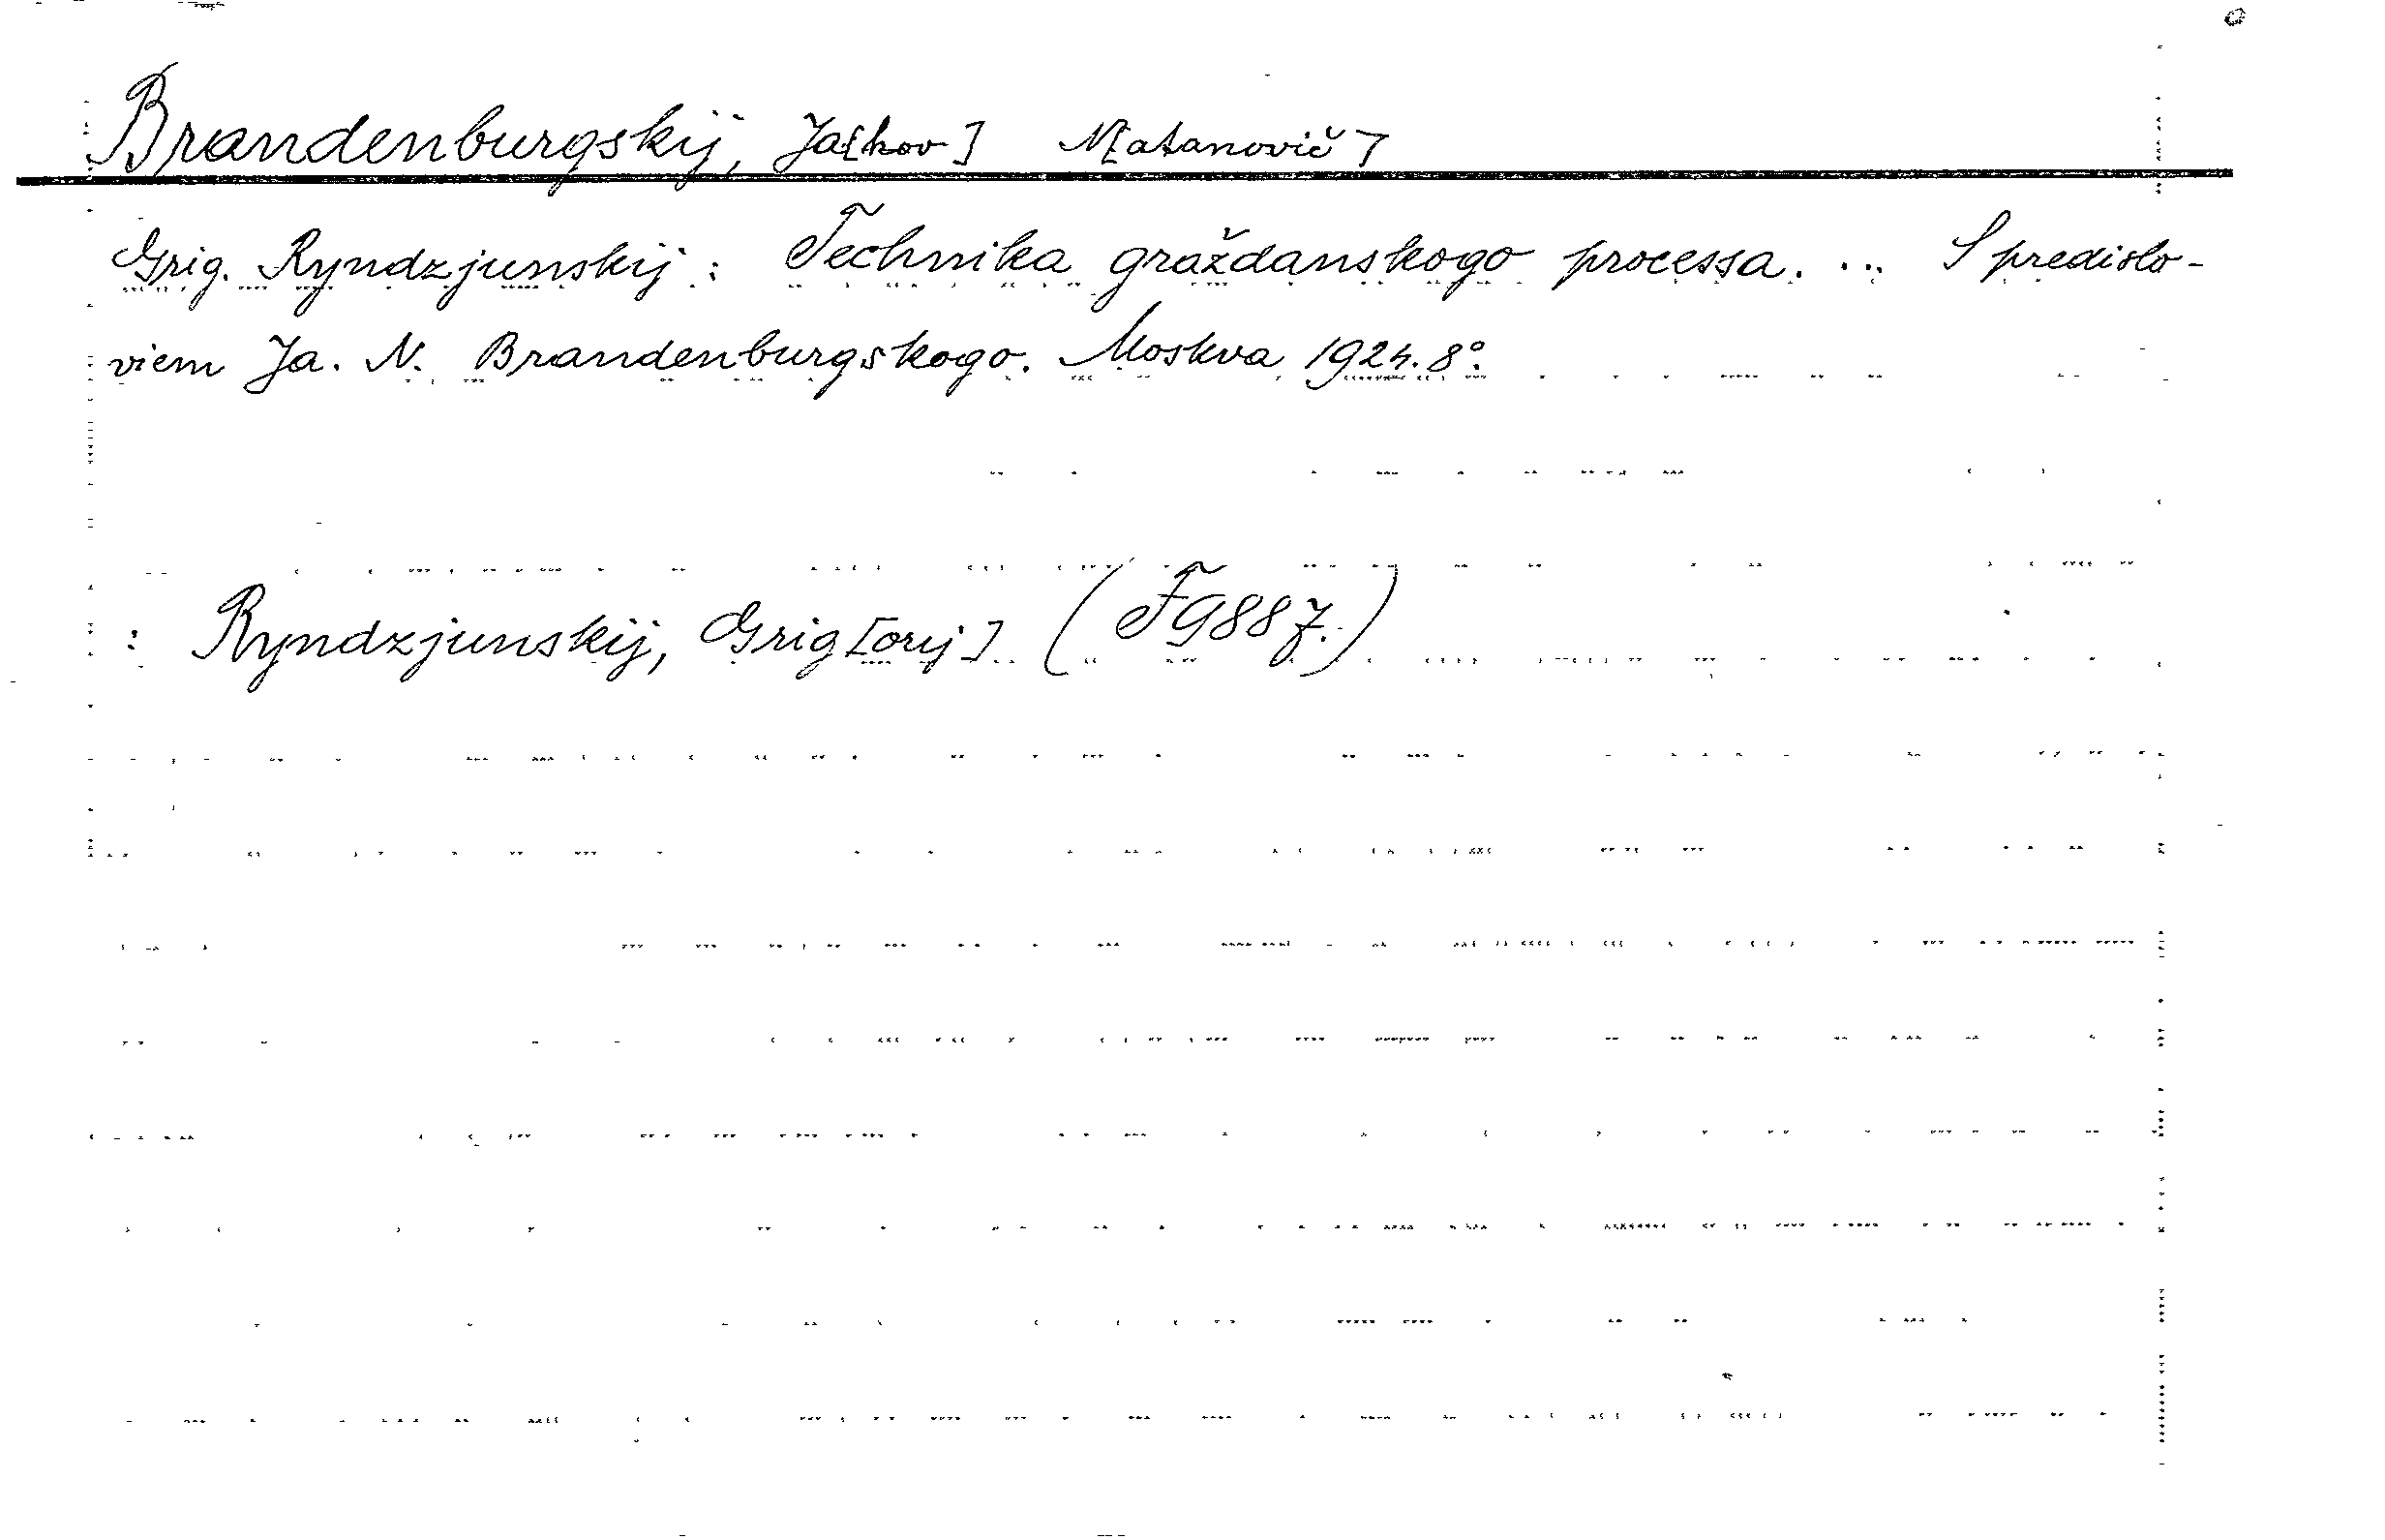 Brandenburgskij, Ja[kov] N[atanovič]
Grig. Ryndzjunskij: Technika graždanskogo processa. ... S predislo-
viem Ja. N. Brandenburgskogo. Moskva 1924. 8°.
: Ryndzjunskij, Grig[orij] (F9887.)